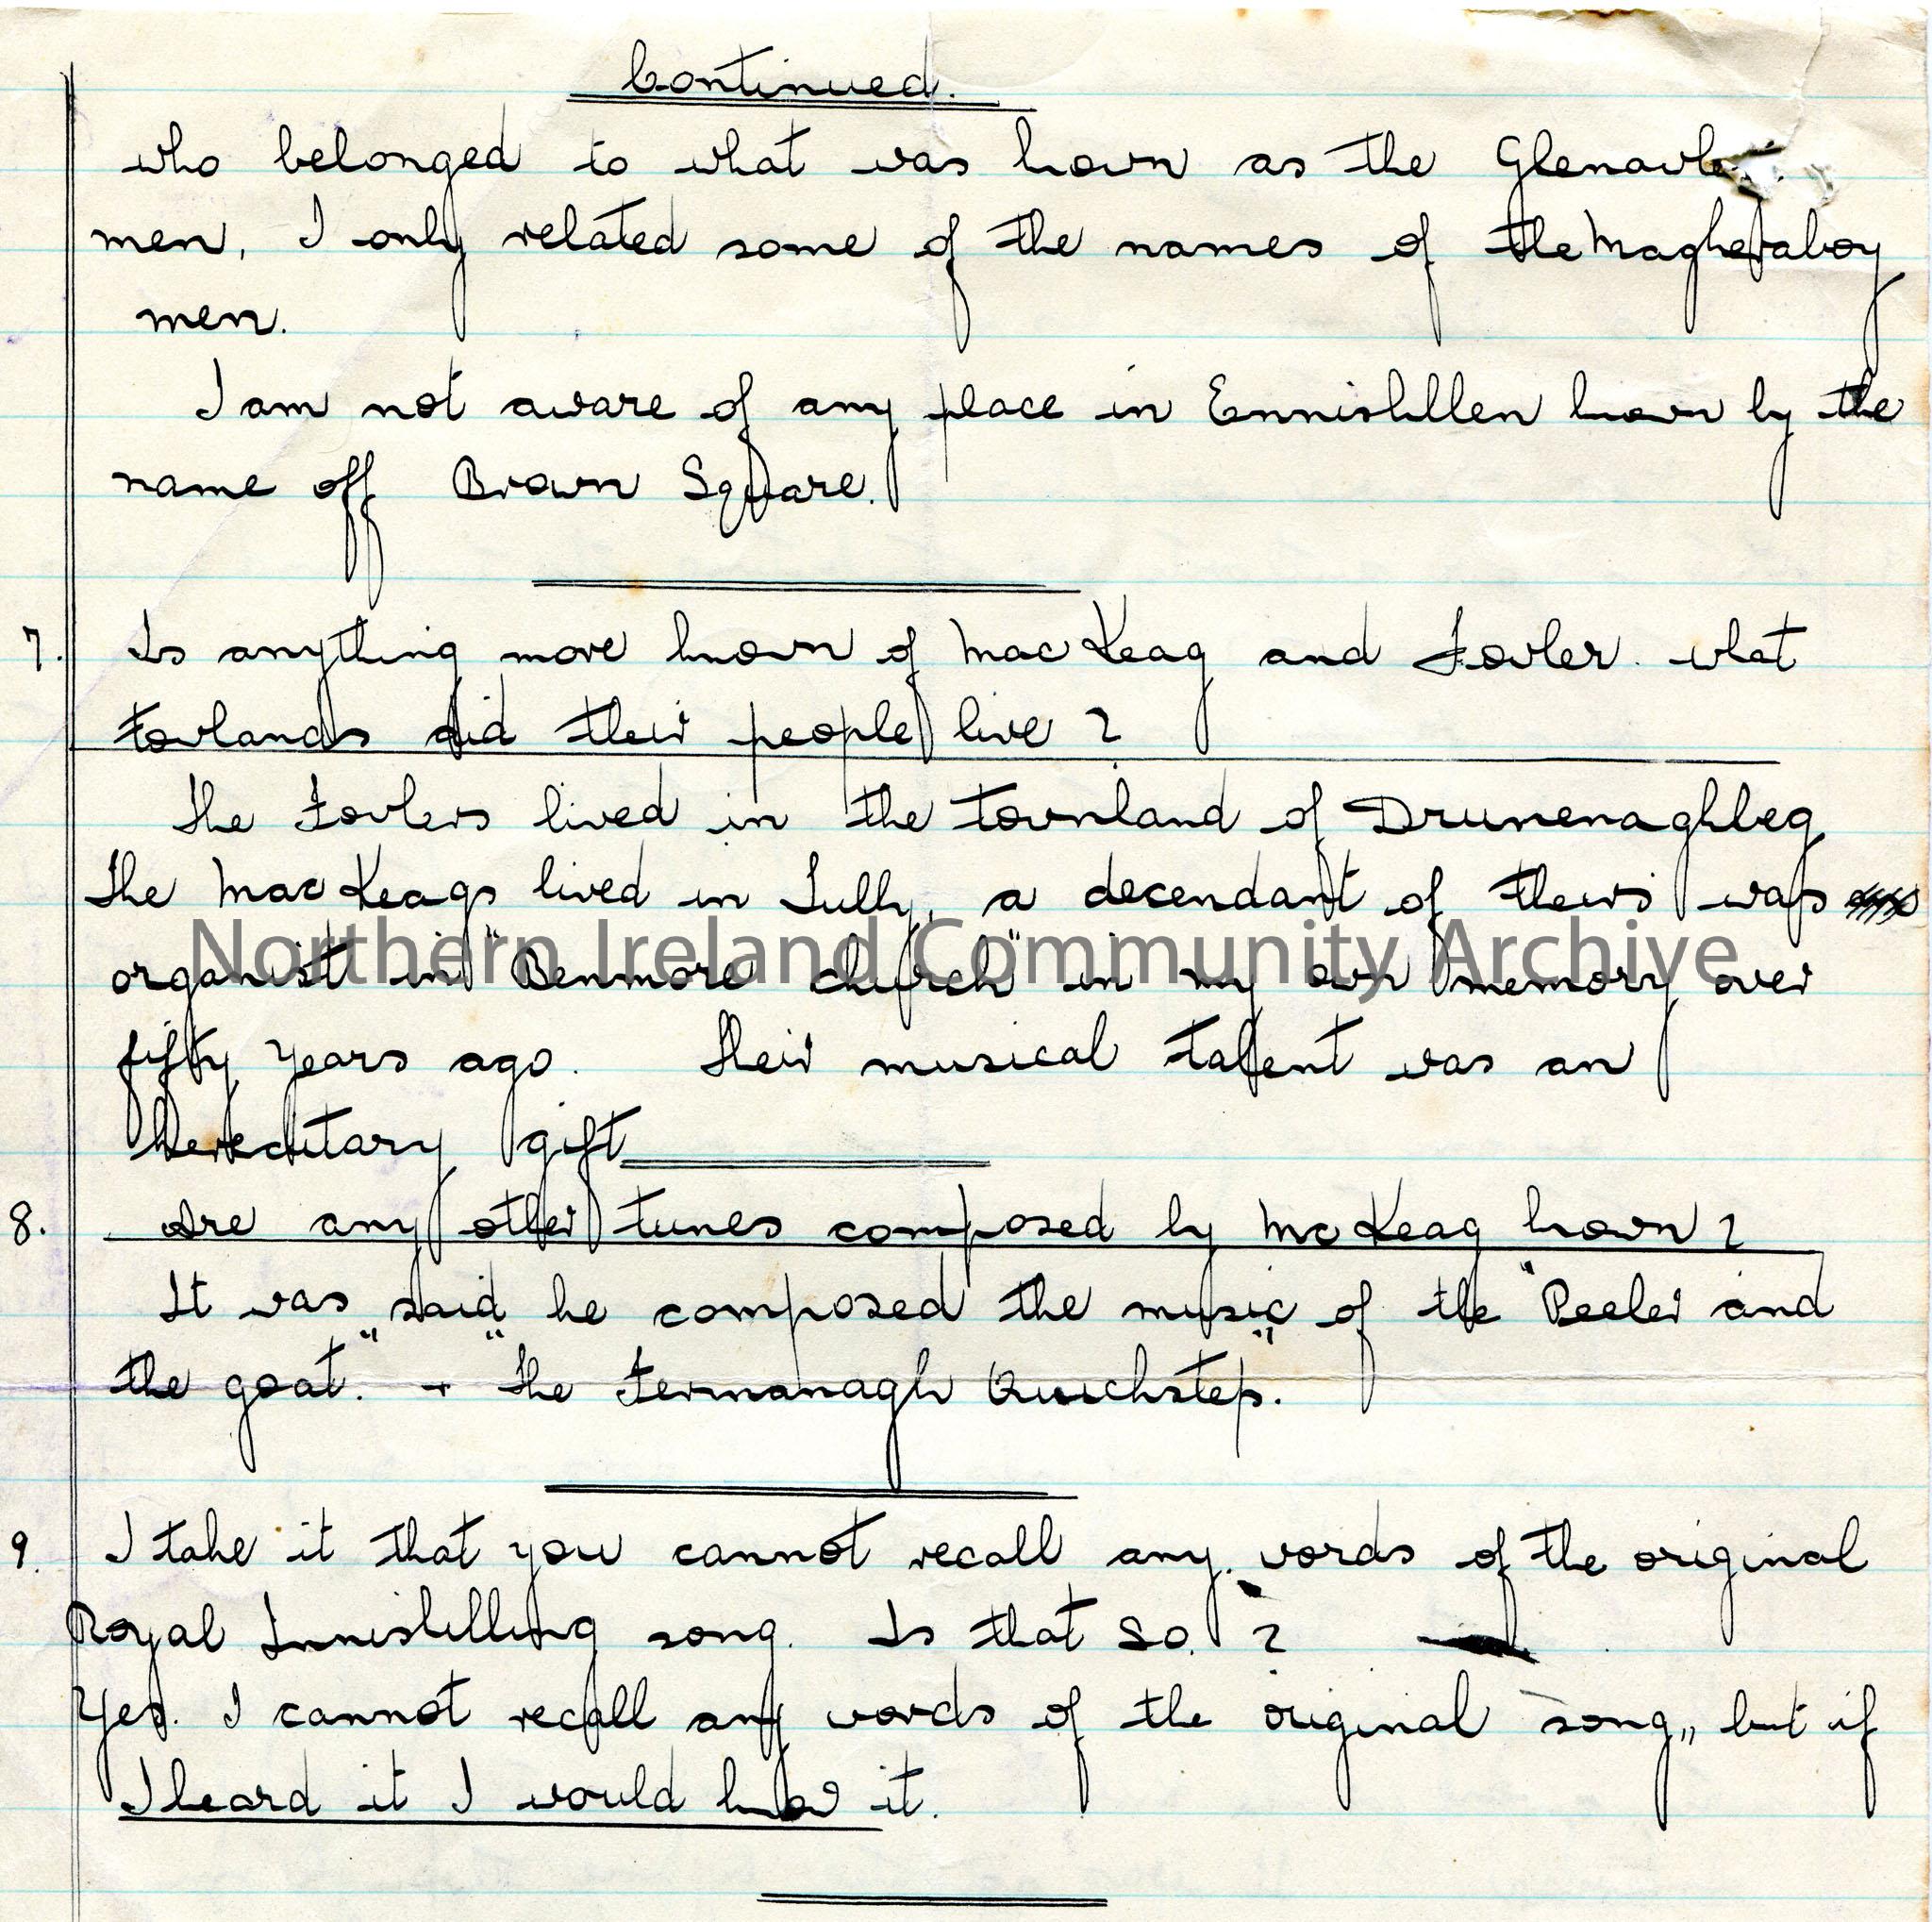 Continued.
who belonged to what was known as the
men, I only related some of the names of the Magheraboy
men.
I am not aware of any place in Enniskillen known by the
name off Brown Square.
7. Is anything more known of MacKeag and Fowler. what
townlands did their people live ?
The Fowlers lived in the townland of Drumenaghbeg
the MacKeags lived in Tully, a decendant of theirs was
organist in "Benmore church" in my own memory over
fifty years ago. Their musical talent was an
hereditary gift
8. Are any other tunes composed by McKeag known ?
It was said he composed the music of the "Peeler and
the goat." + "The Fermanagh Quickstep."
9. I take it that you cannot recall any words of the original
Royal Inniskilling song. Is that so. ?
Yes. I cannot recall any words of the original song,, but if
I heard it I would know it.
Northern Ireland Community Archive